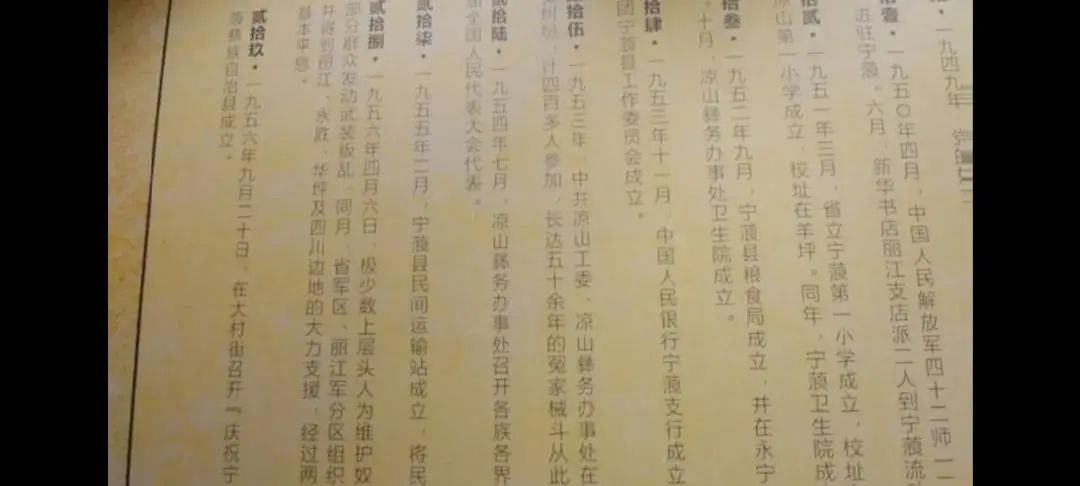 一九四九年
拾壹·一九五〇年四月，中国人民解放军四十二师一二
进驻宁蒗。六月，新华书店丽江支店派二人到宁蒗流
拾贰·一九五一年三月，省立宁蒗第一小学成立，校址
凉山第一小学成立，校址在羊坪。同年，宁蒗卫生院成
拾叁·一九五二年九月，宁蒗县粮食局成立，并在永宁
十月，凉山彝务办事处卫生院成立。
拾肆·一九五三年十一月，中国人民银行宁蒗支行成立
团宁蒗县工作委员会成立。
拾伍·一九五三年，中共凉山工委、凉山彝务办事处在
纠纷，计四百多人参加，长达五十余年的冤家械斗从此
贰拾陆·一九五四年七月，凉山彝务办事处召开各族各界
届全国人民代表大会代表。
贰拾柒·一九五五年二月，宁蒗县民间运输站成立，将民
贰拾捌·一九五六年四月六日，极少数上层头人为维护奴
部分群众发动武装叛乱，同月，省军区、丽江军分区组织
并得到丽江、永胜、华坪及四川边地的大力支援，经过两
基本平息。
贰拾玖·一九五六年九月二十日，在大村街召开“庆祝宁
蒗彝族自治县成立。